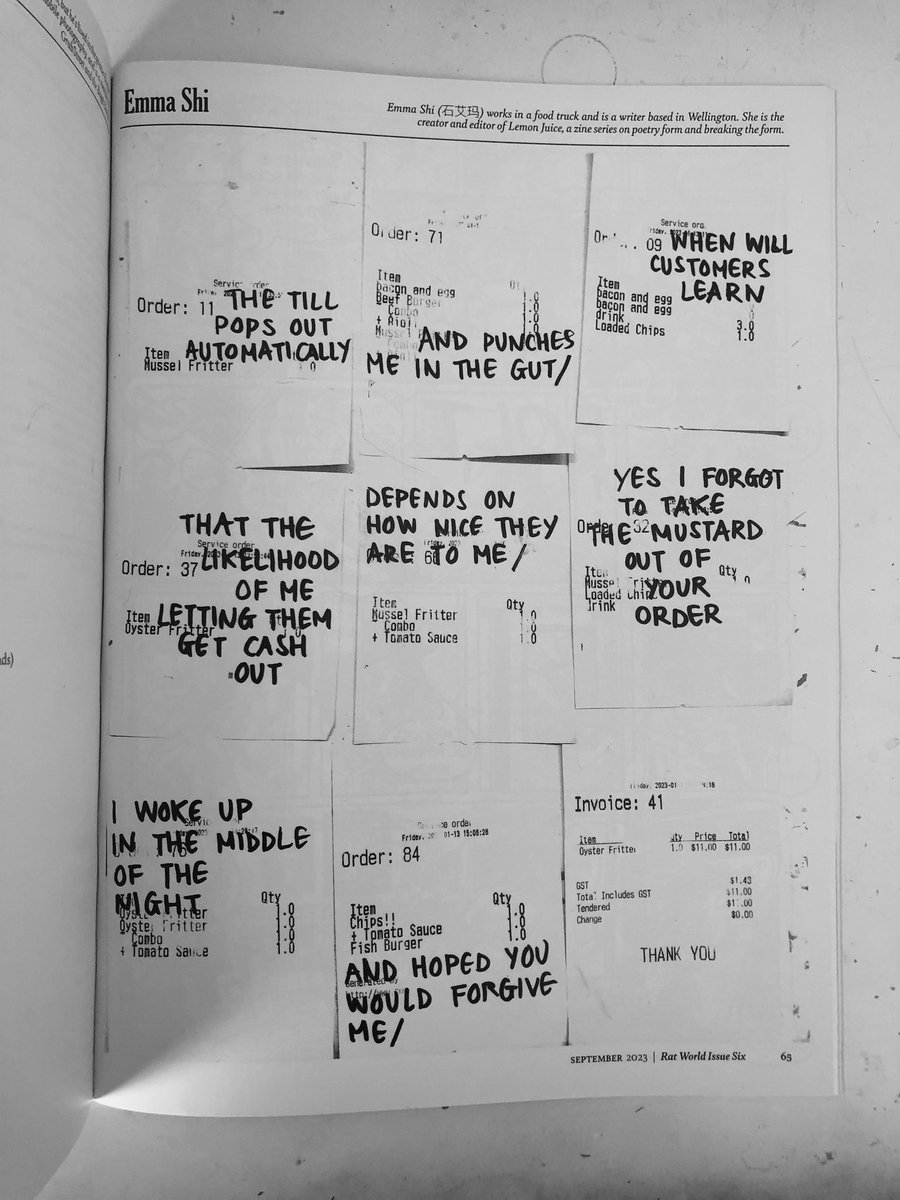 Emma Shi
Emma Shi (石艾玛) works in a food truck and is a writer based in Wellington. She is the
creator and editor of Lemon Juice, a zine series on poetry form and breaking the form.
Service order
Order: 11 THE TILL
POPS OUT
Item AUTOMATICALLY
Mussel Fritter
Order: 71
Item
bacon and egg 1.0
Beef Burger 1.0
Combo 1.0
+ Aioli 1.0
AND PUNCHES
ME IN THE GUT/
Service
09 WHEN WILL
CUSTOMERS
Item LEARN
bacon and egg
bacon and egg
drink 3.0
Loaded Chips 1.0
THAT THE
Service order
Order: 37 LIKELIHOOD
OF ME
Item LETTING THEM
Oyster Fritter
GET CASH
OUT
DEPENDS ON
HOW NICE THEY
ARE TO ME/
Item Qty
Mussel Fritter 1.0
Combo 1.0
+ Tomato Sauce 1.0
YES I FORGOT
TO TAKE
THE MUSTARD
OUT OF
Qty
YOUR
Loaded
drink
ORDER
I WOKE UP
IN THE MIDDLE
OF THE
NIGHT
Qty
Oyster Fritter 1.0
Oyster Fritter 1.0
Combo 1.0
+ Tomato Sauce 1.0
order
Friday, 01-13 15:05:28
Order: 84
Qty
Item 1.0
Chips!! 1.0
+ Tomato Sauce 1.0
Fish Burger
AND HOPED YOU
WOULD FORGIVE
ME/
Invoice: 41
Item Price Total
Oyster Fritter 1.0 $11.00 $11.00
GST $1.43
Total Includes GST $11.00
Tendered
Change $0.00
THANK YOU
SEPTEMBER 2023 | Rat World Issue Six 65